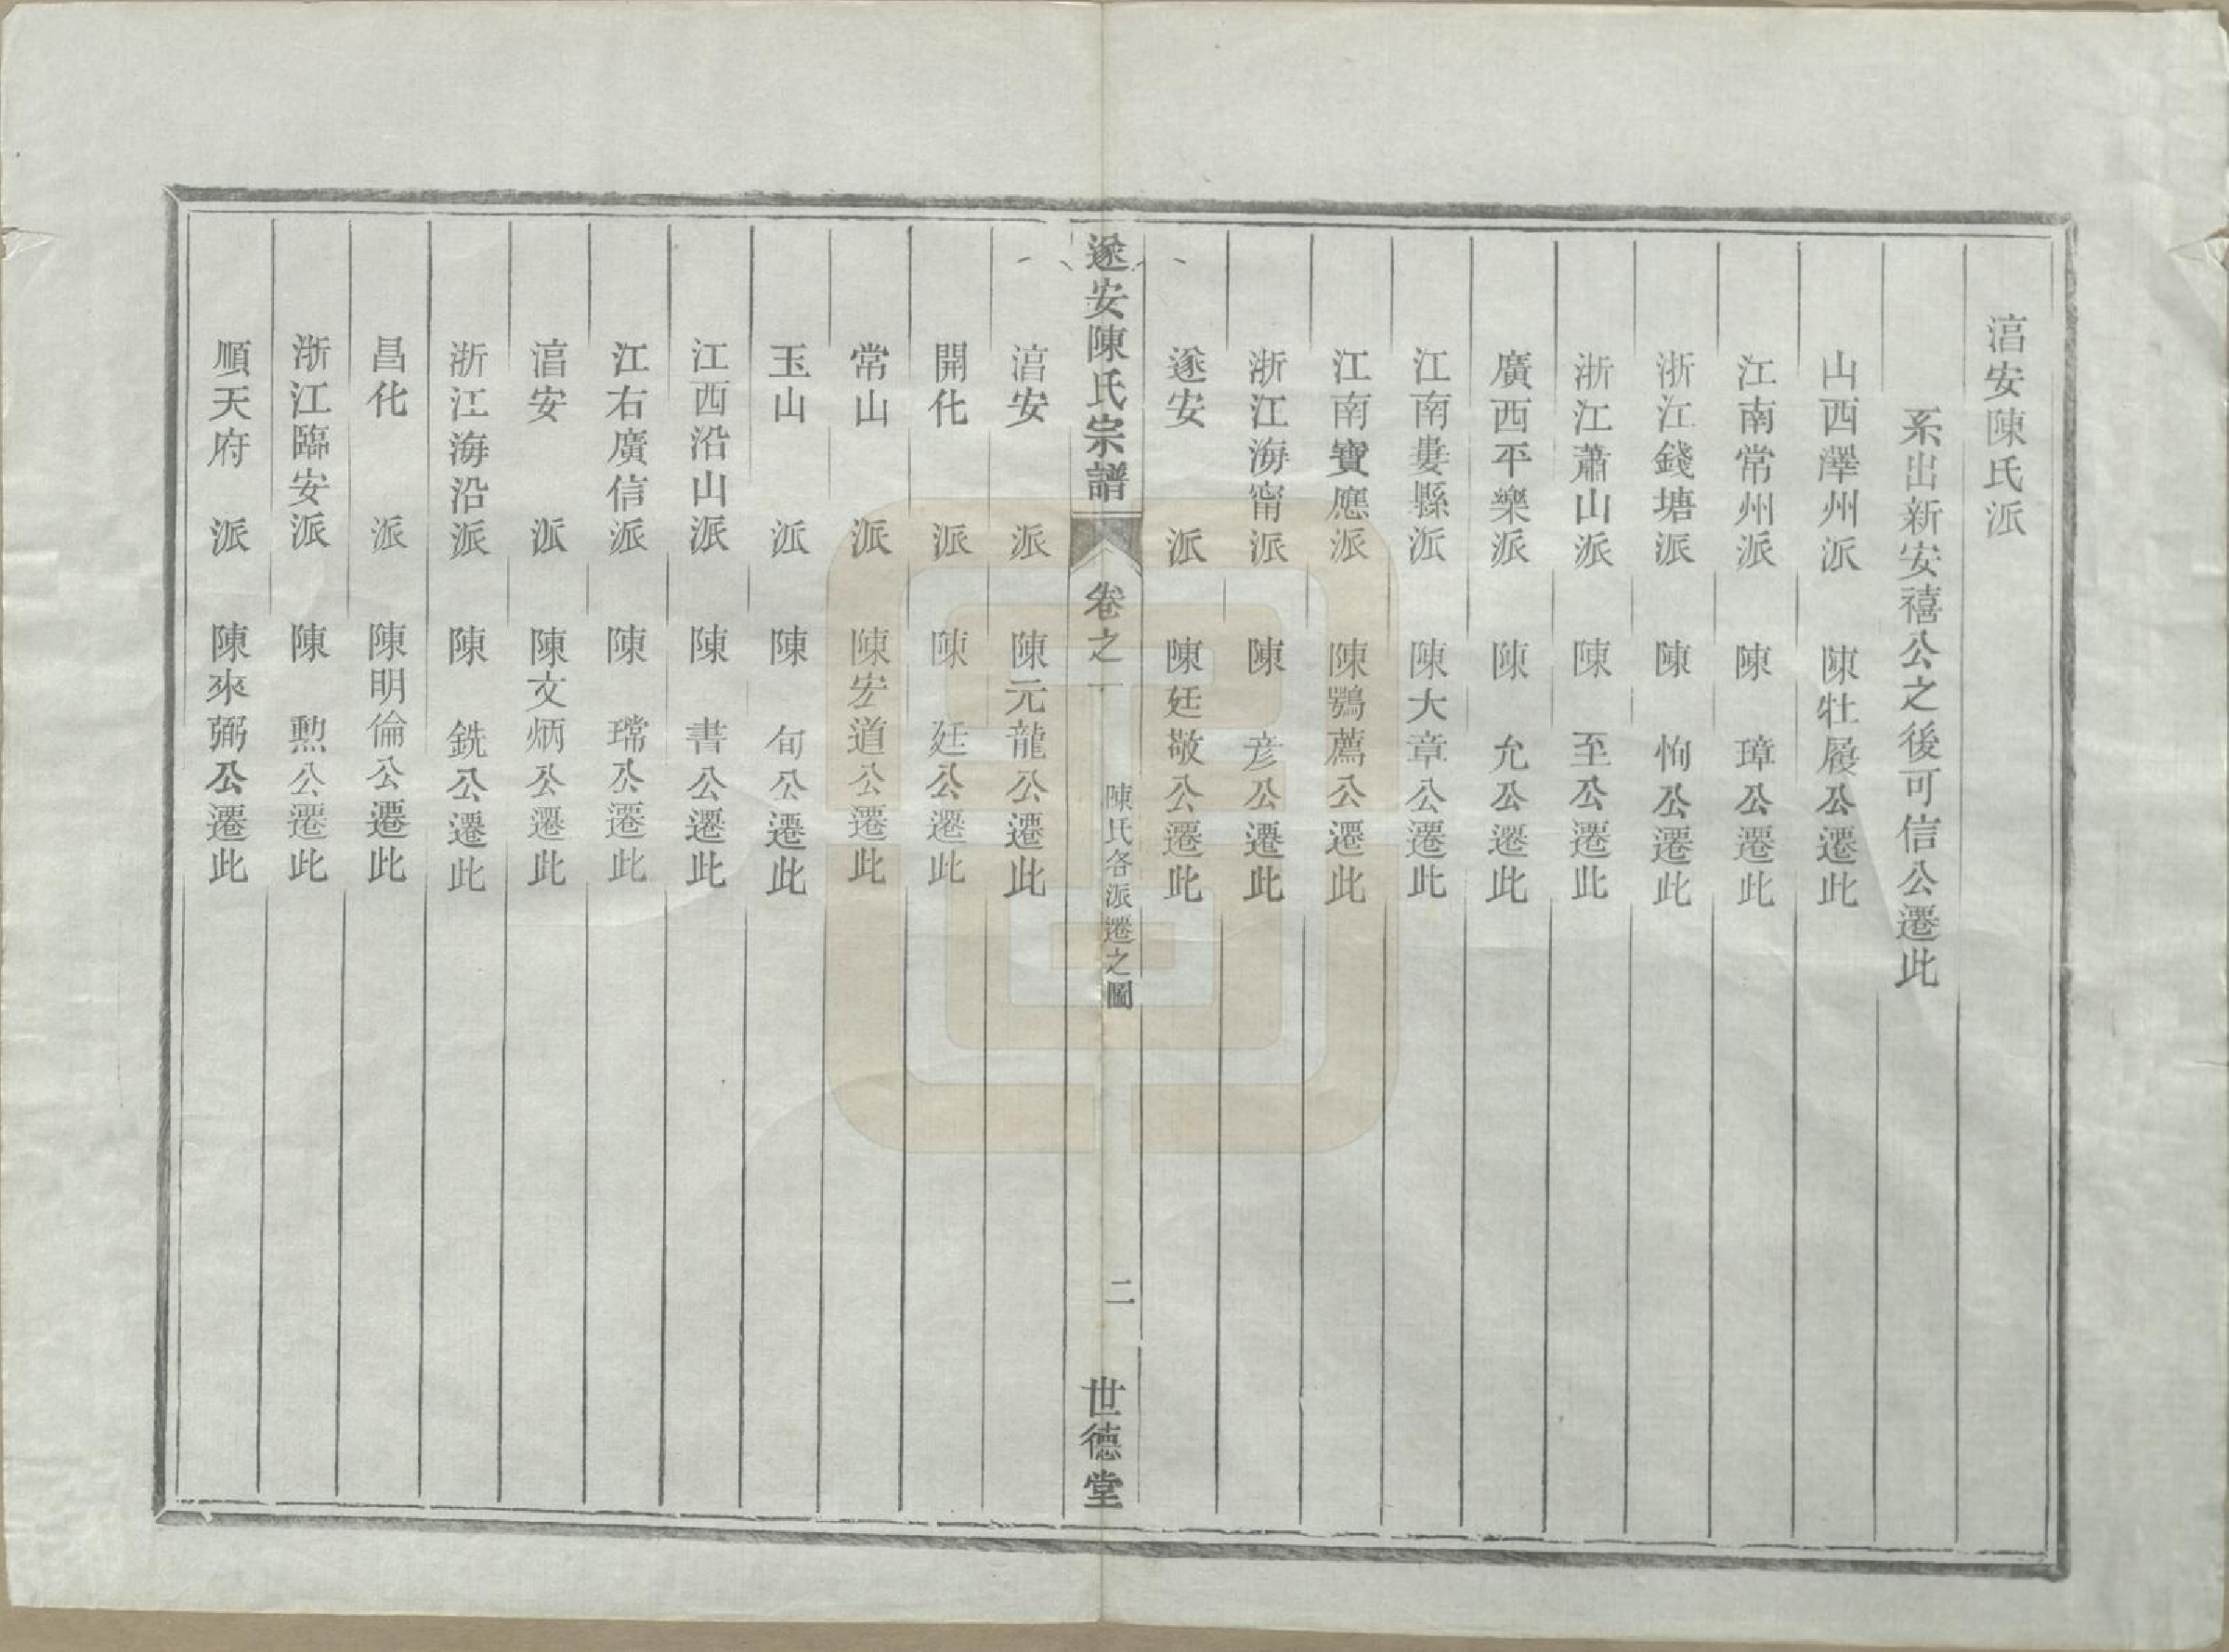 湻安陳氏派
系出新安禧公之後可信公遷此
山西澤州派 陳壯履公遷此
江南常州派 陳璋公遷此
浙江錢塘派 陳恂公遷此
浙江蕭山派 陳至公遷此
廣西平樂派 陳允公遷此
江南婁縣派 陳大章公遷此
江南寶應派 陳鶚薦公遷此
浙江海甯派 陳彦公遷此
遂安派 陳廷敬公遷此
遂安陳氏宗譜 卷之一 陳氏各派遷之圖 二 世德堂
湻安派 陳元龍公遷此
開化派 陳廷公遷此
常山派 陳宏道公遷此
玉山派 陳旬公遷此
江西沿山派 陳書公遷此
江右廣信派 陳瑺公遷此
湻安派 陳文炳公遷此
浙江海沿派 陳銑公遷此
昌化派 陳明倫公遷此
浙江臨安派 陳勲公遷此
順天府派 陳來弼公遷此